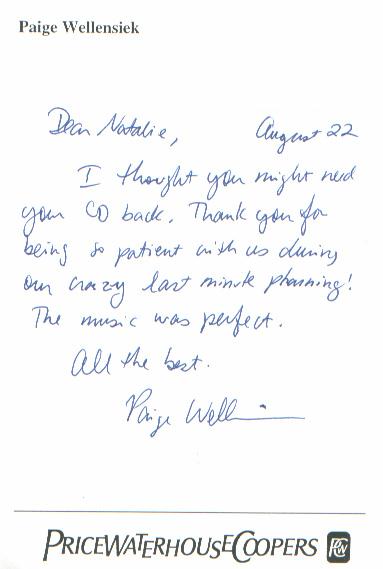 Paige Wellensiek
Dear Natalie, August 22
I thought you might need
your CD back. Thank you for
being so patient with us during
our crazy last minute planning!
The music was perfect.
All the best.
Paige Well
PRICEWATERHOUSECOOPERS PwC